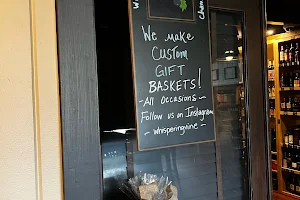 We make
Custom
Gift
Baskets!
- All Occasions -
Follow us on Instagram
- whisperingvine -